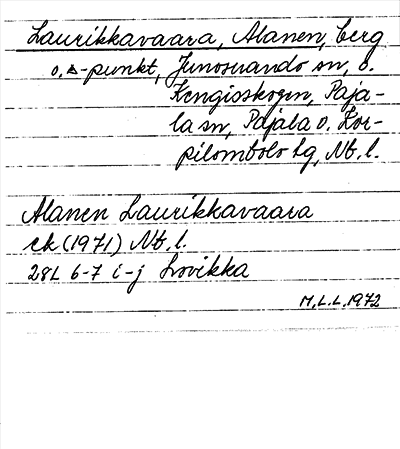 Laurikkavaara, Alanen, berg
o. △-punkt, Junosuando sn, o.
Kengisskogen, Paja-
la sn, Pajala o. Kor-
pilombolo tg, Nb. l.
Alanen Laurikkavaara
ek (1971) Nb. l.
28L 6-7 i-j Lovikka
M.L.L. 1972